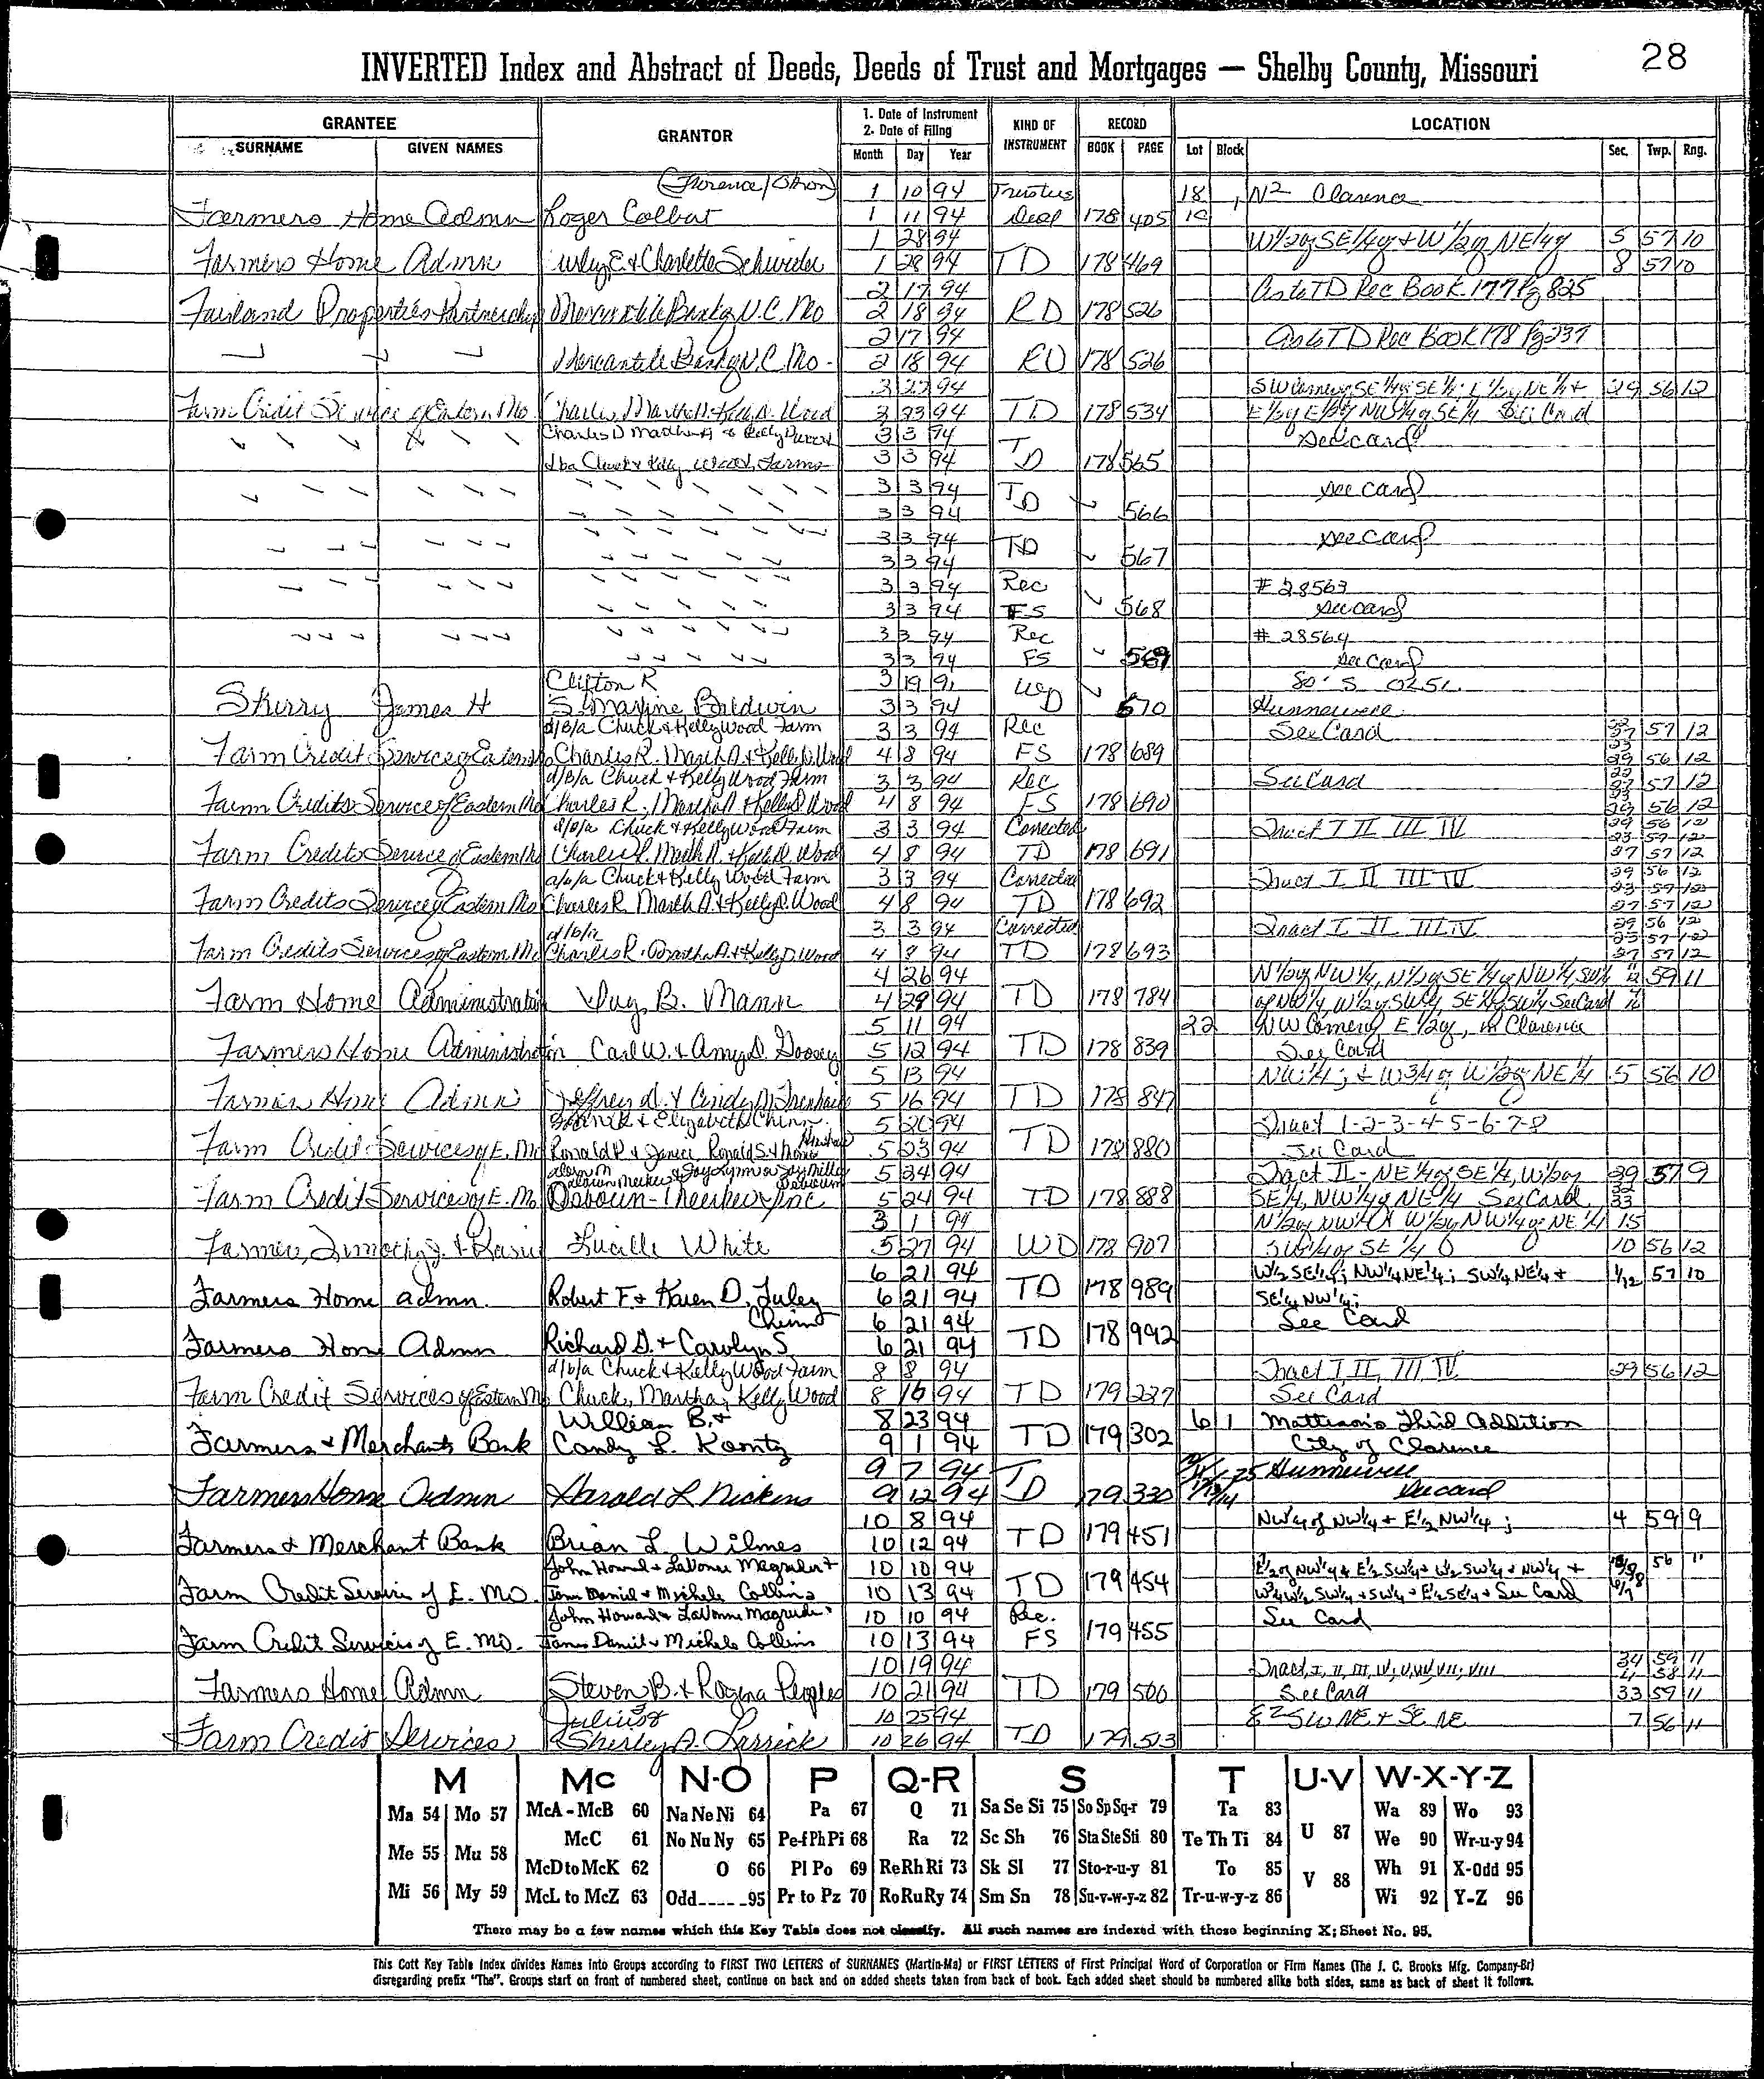 28
INVERTED Index and Abstract of Deeds, Deeds of Trust and Mortgages — Shelby County, Missouri
GRANTEE
SURNAME GIVEN NAMES
GRANTOR
1. Date of Instrument
2. Date of Filing
Month Day Year
KIND OF INSTRUMENT
RECORD
BOOK PAGE
LOCATION
Lot Block Sec. Twp. Rng.
1 10 94 Trustees 18 , N2 Clarence
Farmers Home Admn Roger Colbat 1 11 94 Deed 178 405
1 28 94 W1/2 of SE1/4 of + W1/2 of NE1/4 of 5 57 10
Farmers Home Admn E. + Charlotte 1 28 94 TD 178 469 8 57 10
2 17 94 As to TD Rec Book 177 Pg 825
Properties Partnership Mercantile Bank of N.C. Mo 2 18 94 RD 178 526
2 17 94 As to TD Rec Book 178 Pg 237
Mercantile Bank of N.C. Mo. 2 18 94 RD 178 526
94 29 56 12
Farm Credit Service of Eastern Mo. Charles, Martha A. + Kelly D. Wood 94 TD 178 534 E1/2 of E1/2 of NW1/4 of SE1/4 See Card
Charles D Martha A + Kelly D Wood 3 3 94 TD See card
dba Chuck + Kelly Wood Farms 3 3 94 178 565
3 3 94 TD see card
3 3 94 566
3 3 94 TD see card
3 3 94 567
3 3 94 Rec # 28563
3 3 94 FS 568 see card
3 3 94 Rec # 28564
3 3 94 FS 569 see card
Clifton R 3 19 91 WD 80' S
James H S. Maxine Baldwin 3 3 94 570 Hunnewell
d/b/a Chuck + Kelly Wood Farm 3 3 94 Rec See Card 57 12
Farm Credit Service of Eastern Mo Charles R. Martha A + Kelly D. Wood 4 8 94 FS 178 689 29 56 12
d/b/a Chuck + Kelly Wood Farm 3 3 94 Rec See Card 57 12
Farm Credits Service of Eastern Mo Charles R., Martha A + Kelly D. Wood 4 8 94 FS 178 690 29 56 12
d/b/a Chuck + Kelly Wood Farm 3 3 94 Corrected Tract I II III IV 29 56 12
23 57 12
Farm Credits Service of Eastern Mo Charles R. Martha A. + Kelly D. Wood 4 8 94 TD 178 691 27 57 12
d/b/a Chuck + Kelly Wood Farm 3 3 94 Corrected Tract I II III IV 29 56 12
23 57 12
Farm Credits Service of Eastern Mo Charles R Martha A. + Kelly D. Wood 4 8 94 TD 178 692 27 57 12
d/b/a 3 3 94 Corrected Tract I II III IV 29 56 12
23 57 12
Farm Credits Services of Eastern Mo Charles R. Martha A. + Kelly D. Wood 4 8 94 TD 178 693 27 57 12
4 26 94 N1/2 of NW1/4, N1/2 of SE1/4 of NW1/4, SW1/4 59 11
Farm Home Administration B. Mann 4 29 94 TD 178 784 of NW1/4, W1/2 of SW1/4, SE1/4 of SW1/4 See Card
5 11 94 22 NW Corner of E1/2 of, in Clarence
Farmers Home Administration Carl W. + Amy D. 5 12 94 TD 178 839 See Card
5 13 94 NW1/4; + W3/4 of W1/2 of NE1/4 5 56 10
Farmers Home Admn Jeffrey + Cindy 5 16 94 TD 178 847
+ Elizabeth Chinn 5 20 94 Tract 1-2-3-4-5-6-7-8
Farm Credit Services of E. Mo Ronald R + Janice, Ronald S. + 5 23 94 TD 178 880 See Card
5 24 94 Tract II - NE1/4 of SE1/4, W1/2 of 29 57 9
Farm Credit Services of E. Mo Osbourn-Meeker Inc 5 24 94 TD 178 888 SE1/4, NW1/4 of NE1/4 See Card 33
3 1 94 N1/2 of NW1/4 + W1/2 of NW1/4 of NE1/4 15
Farmer, Timothy J. + Lucille White 5 27 94 WD 178 907 SW1/4 of SE1/4 10 56 12
6 21 94 W1/2 SE1/4; NW1/4 NE1/4; SW1/4 NE1/4 + 1/12 57 10
Farmers Home Admn. Robert F. + Karen D. 6 21 94 TD 178 989 SE1/4 NW1/4;
Chinn 6 21 94 See Card
Farmers Home Admn Richard D. + Carolyn S. 6 21 94 TD 178 992
d/b/a Chuck + Kelly Wood Farm 8 8 94 Tract I II, III IV 29 56 12
Farm Credit Services of Eastern Mo Chuck, Martha, Kelly Wood 8 16 94 TD 179 227 See Card
William B. + 8 23 94 6 1 Mattison's Third Addition
Farmers + Merchants Bank Candy L. Koontz 9 1 94 TD 179 302 City of Clarence
9 7 94 Hunnewell
Farmers Home Admn Harold L Nickens 9 12 94 TD 179 330 See card
10 8 94 NW1/4 of NW1/4 + E1/2 NW1/4; 4 59 9
Farmers + Merchant Bank Brian L. Wilmes 10 12 94 TD 179 451
John Howard + LaVonne Magruder + 10 10 94 E1/2 of NW1/4 + E1/2 SW1/4 + W1/2 SW1/4 + NW1/4 + 56 11
Farm Credit Service of E. MO James Daniel + Michele Collins 10 13 94 TD 179 454 W3/4 W1/2 SW1/4 + SW1/4 + E1/2 SE1/4 + See Card
John Howard + LaVonne Magruder + 10 10 94 Rec. See Card
Farm Credit Services of E. MO. James Daniel + Michele Collins 10 13 94 FS 179 455
10 19 94 Tract, I, II, III, IV, V, VI, VII, VIII 34 59 11
58 11
Farmers Home Admn Steven B. + Rozena Peoples 10 21 94 TD 179 500 See Card 33 59 11
Julius + 10 25 94 E2 SW NE + SE NE 7 56 11
Farm Credit Services Shirley A. 10 26 94 TD 179 513
M Mc N-O P Q-R S T U-V W-X-Y-Z
Ma 54 Mo 57 McA-McB 60 Na Ne Ni 64 Pa 67 Q 71 Sa Se Si 75 So Sp Sq-r 79 Ta 83 Wa 89 Wo 93
McC 61 No Nu Ny 65 Pe-f Ph Pi 68 Ra 72 Sc Sh 76 Sta Ste Sti 80 Te Th Ti 84 U 87 We 90 Wr-u-y 94
Me 55 Mu 58 McD to McK 62 O 66 Pl Po 69 Re Rh Ri 73 Sk Sl 77 Sto-r-u-y 81 To 85 V 88 Wh 91 X-Odd 95
Mi 56 My 59 McL to McZ 63 Odd-----95 Pr to Pz 70 Ro Ru Ry 74 Sm Sn 78 Su-v-w-y-z 82 Tr-u-w-y-z 86 Wi 92 Y-Z 96
There may be a few names which this Key Table does not classify. All such names are indexed with those beginning X; Sheet No. 95.
This Cott Key Table Index divides Names into Groups according to FIRST TWO LETTERS of SURNAMES (Martin-Ma) or FIRST LETTERS of First Principal Word of Corporation or Firm Names (The J. C. Brooks Mfg. Company-Br)
disregarding prefix "The". Groups start on front of numbered sheet, continue on back and on added sheets taken from back of book. Each added sheet should be numbered alike both sides, same as back of sheet it follows.